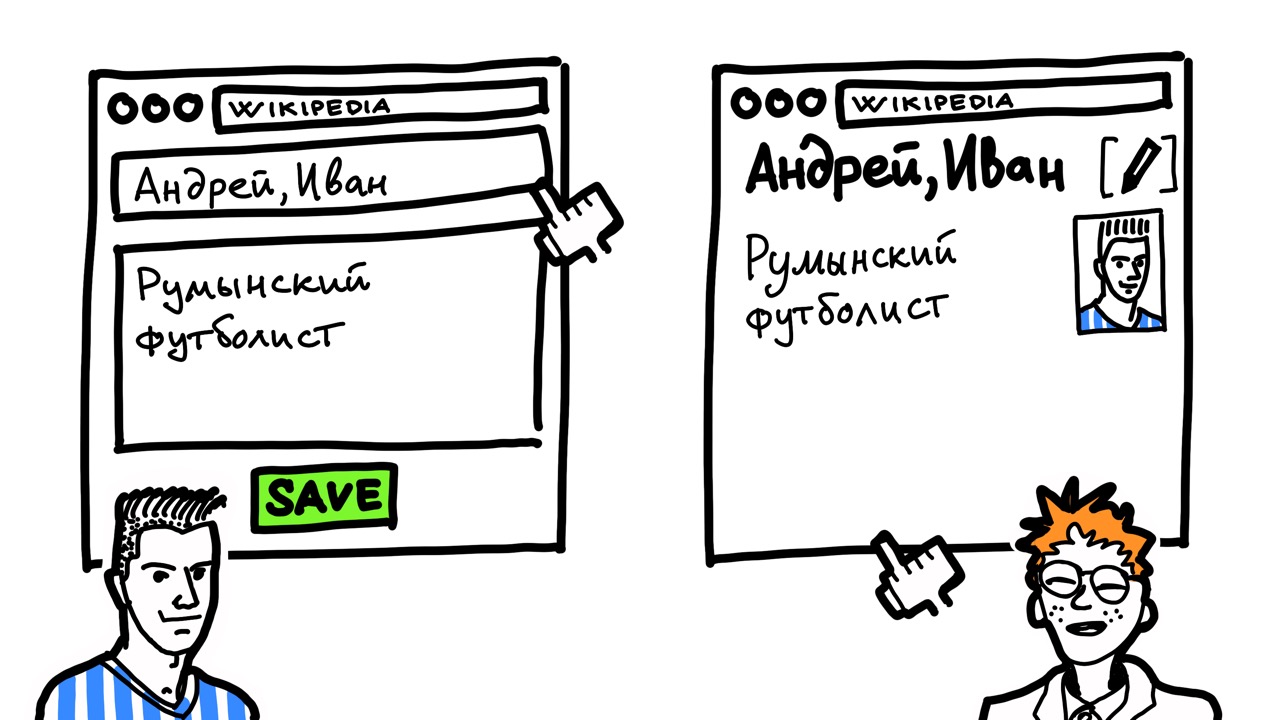 WIKIPEDIA
Андрей, Иван
Румынский
футболист
SAVE
WIKIPEDIA
Андрей, Иван
Румынский
футболист